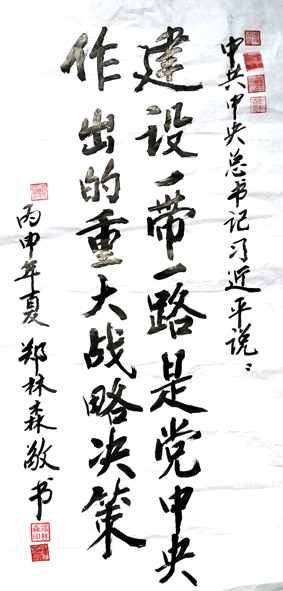 中共中央总书记习近平说：
建设一带一路是党中央
作出的重大战略决策
丙申年夏 郑林森敬书